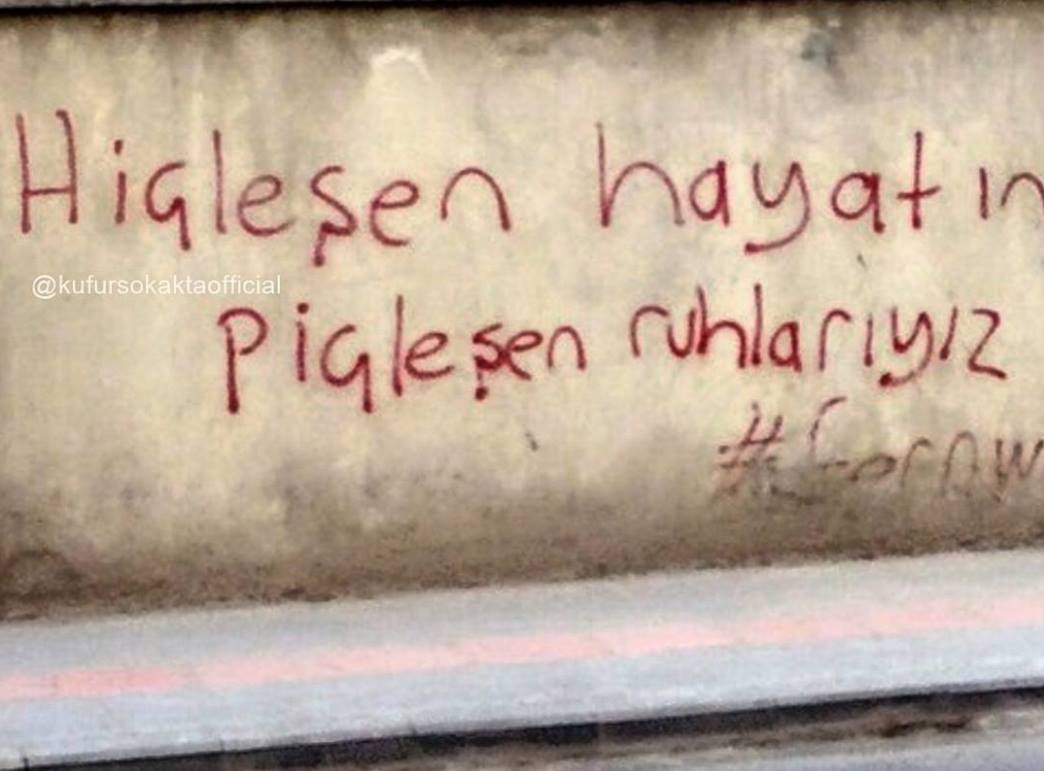 Hiçleşen hayatın
@kufursokaktaofficial
Piçleşen ruhlarıyız